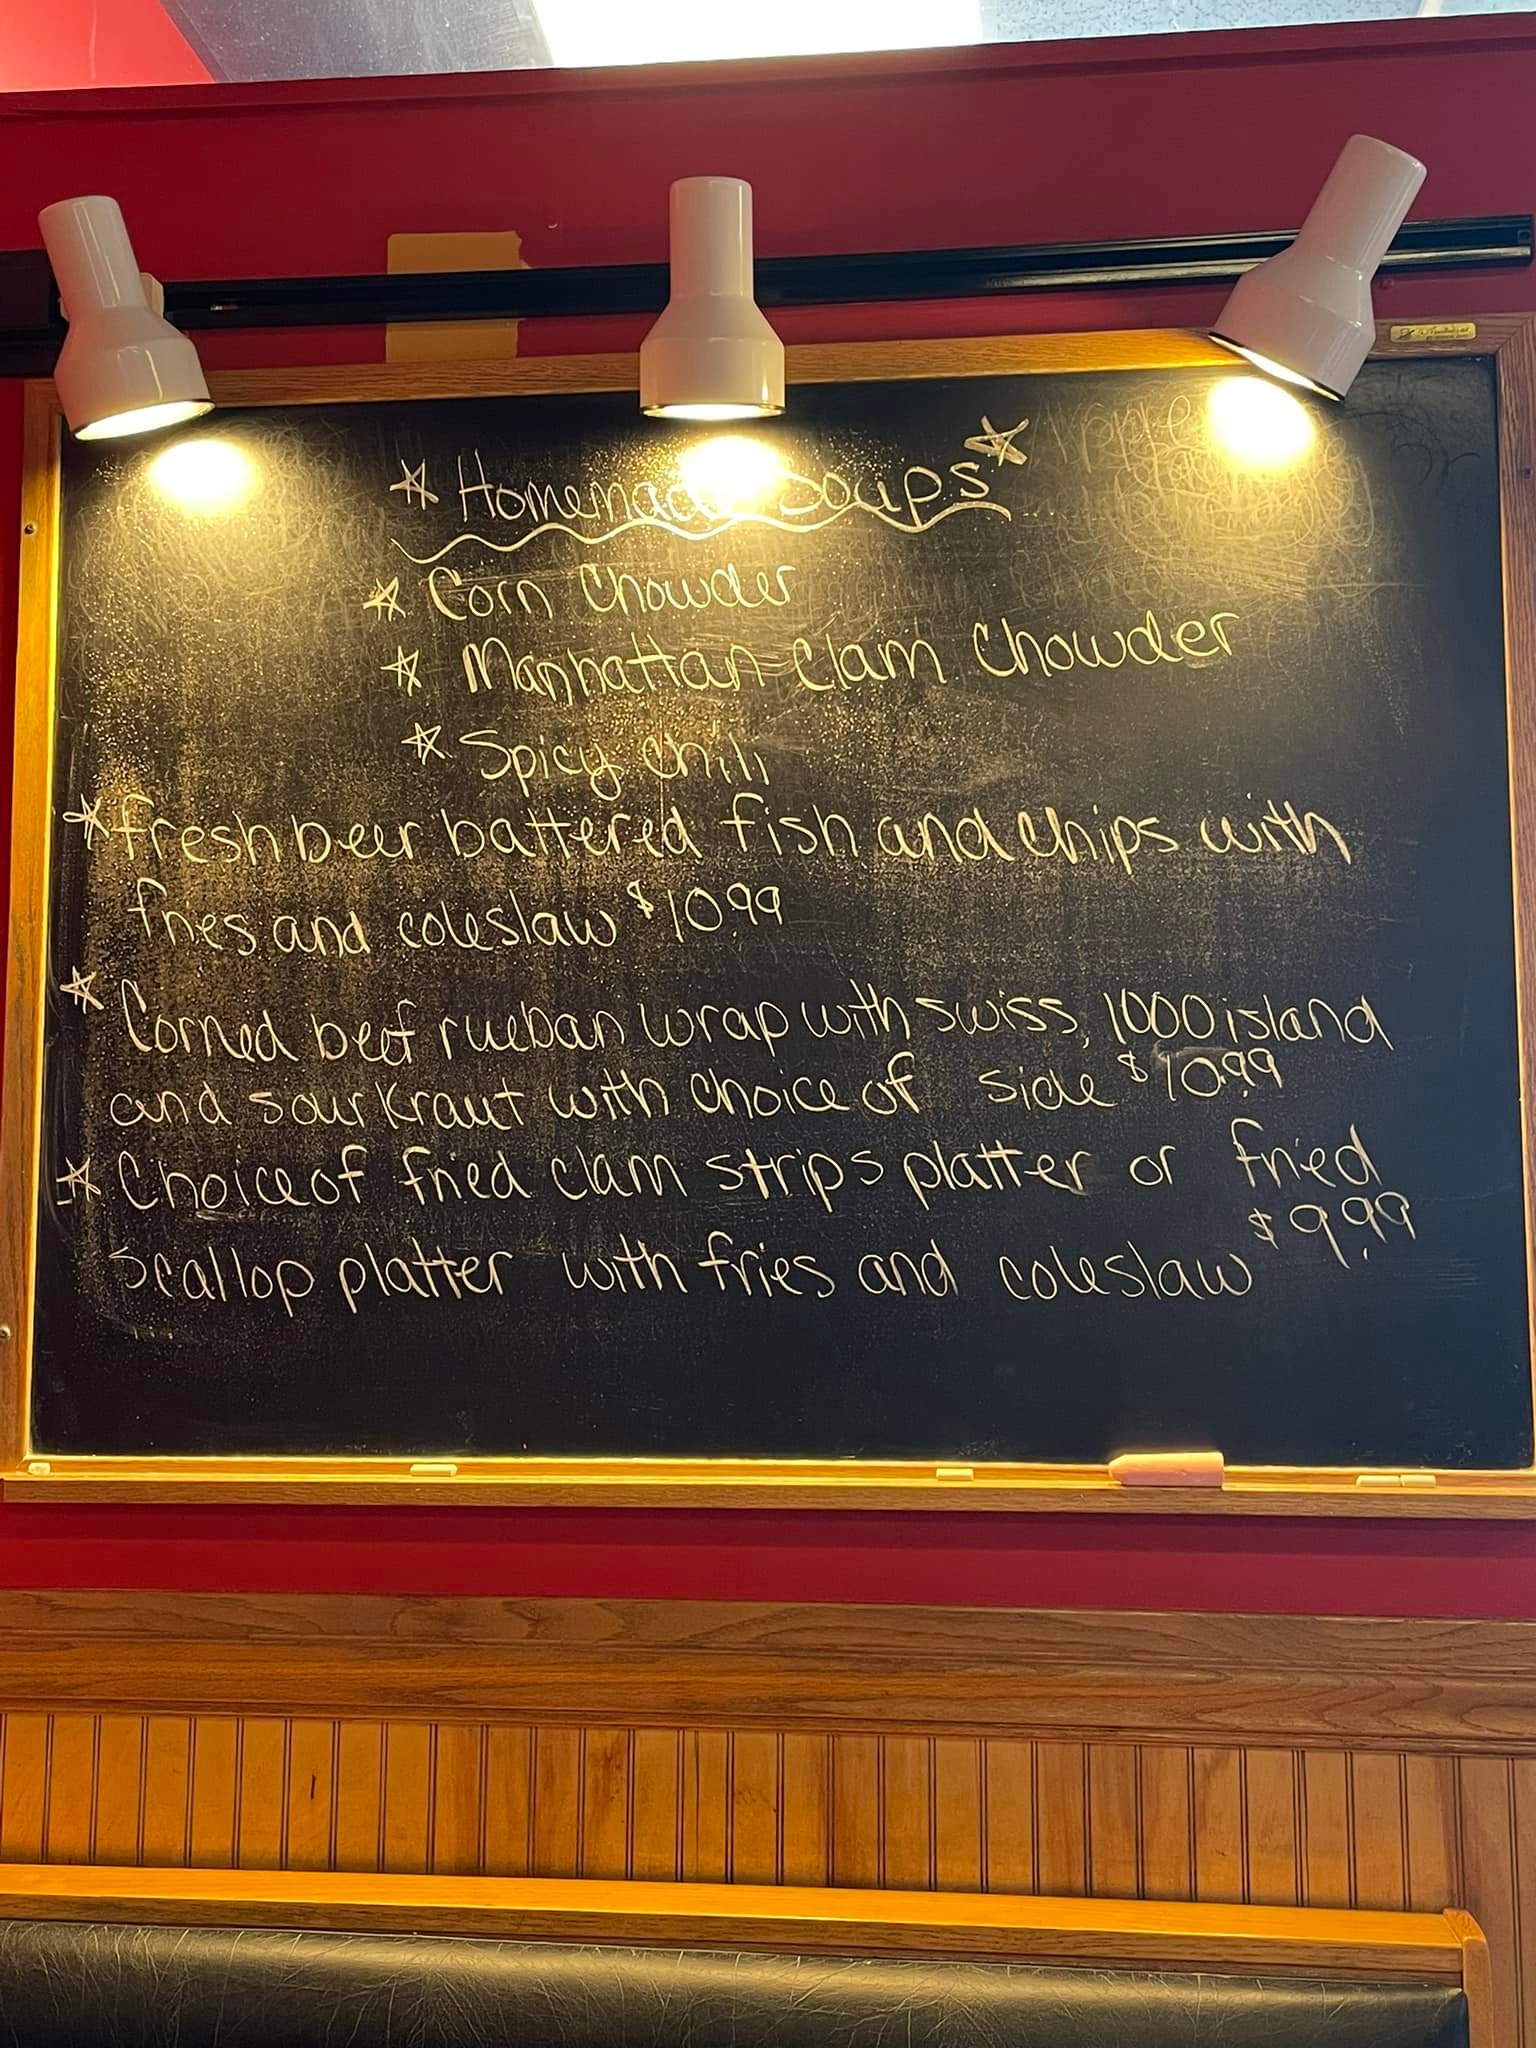 Homemade Soups
Corn Chowder
Manhattan Clam Chowder
Spicy Chili
Fresh beer battered fish and chips with
fries and coleslaw $10.99
Corned beef rueban wrap with swiss, 1000 island
and sour Kraut with choice of side $10.99
Choice of fried clam strips platter or fried
Scallop platter with fries and coleslaw $9.99